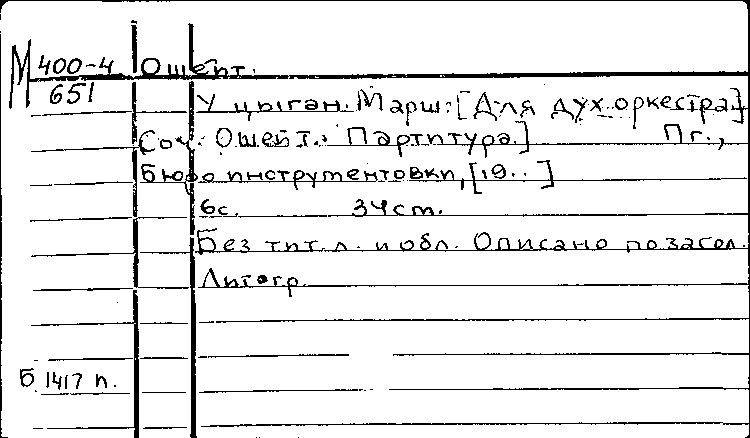 М 400-4 Ошейт.
651
У цыган. Марш. [Для дух. оркестра]
Соч. Ошейт. Партитура.] Пг.,
Бюро инструментовки, [19..]
6с. 34см.
Без тит. л. и обл. Описано по загол.
Литогр.
Б 1417 п.